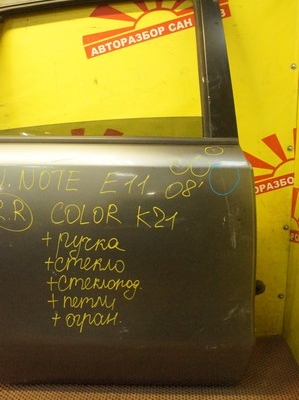 АВТОРАЗБОР САН
АВТОРАЗБОР
N. NOTE E11 08'
R.R COLOR K21
+ ручка
+ стекло
+ стеклопод.
+ петли
+ огран.